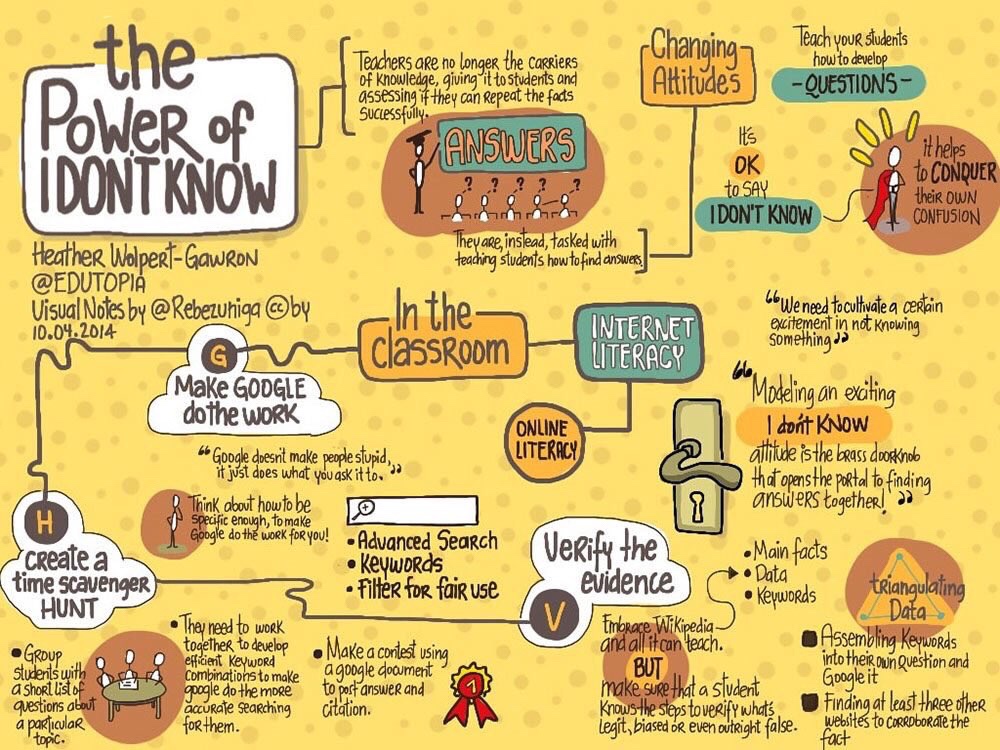 the
Power of
I DON'T KNOW
Heather Wolpert-Gawron
@EDUTOPIA
Visual Notes by @Rebezuniga cc by
10.04.2014
Teachers are no longer the carriers
of knowledge, giving it to students and
assessing if they can repeat the facts
successfully.
ANSWERS
? ? ? ? ?
They are, instead, tasked with
teaching students how to find answers
Changing
Attitudes
Teach your students
how to develop
- QUESTIONS -
It's
OK
to SAY
I DON'T KNOW
it helps
to CONQUER
their own
CONFUSION
In the
classroom
INTERNET
LITERACY
ONLINE
LITERACY
“We need to cultivate a certain
excitement in not knowing
something”
“Modeling an exciting
I don't KNOW
attitude is the brass doorknob
that opens the portal to finding
answers together!”
G
Make GOOGLE
do the WORK
“Google doesn't make people stupid,
it just does what you ask it to.”
Think about how to be
specific enough, to make
Google do the work for you!
• Advanced Search
• Keywords
• Filter for fair use
H
Create a
time scavenger
HUNT
• Group
students with
a short list of
questions about
a particular
topic.
• They need to work
together to develop
efficient keyword
combinations to make
google do the more
accurate searching
for them.
• Make a contest using
a google document
to port answer and
citation.
1
Verify the
evidence
V
Embrace Wikipedia
and all it can teach.
BUT
make sure that a student
knows the steps to verify what's
legit, biased or even outright false.
• Main facts
• Data
• Keywords
triangulating
Data
Assembling Keywords
into their own Question and
Google it
Finding at least three other
websites to corroborate the
fact